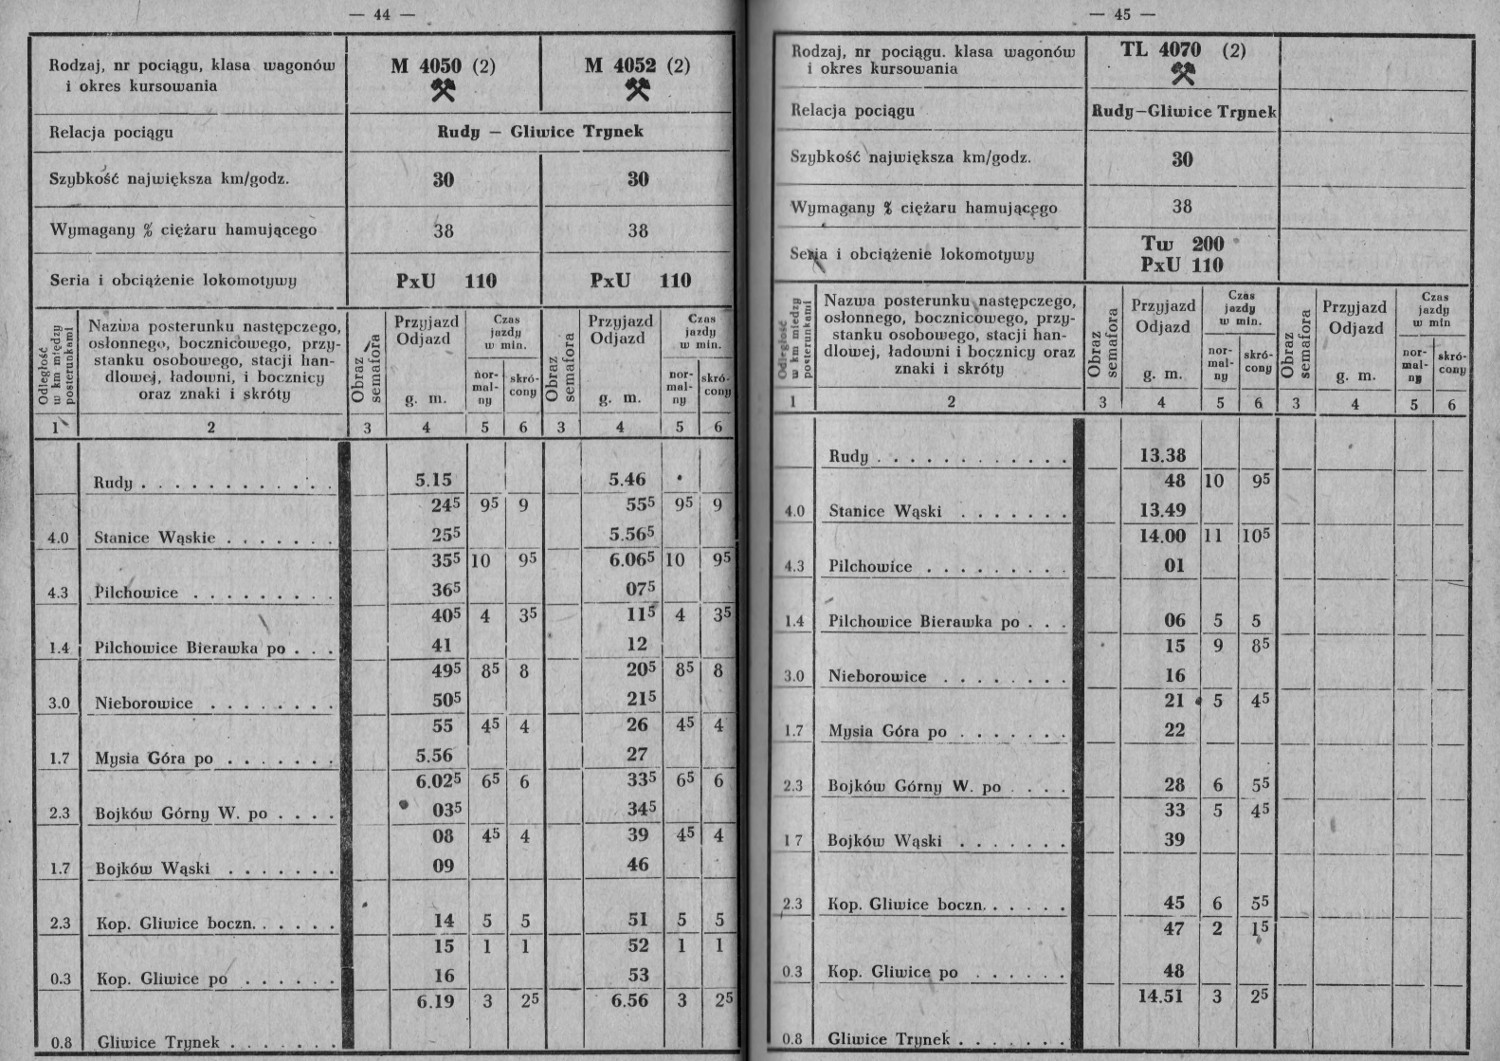 — 44 —
Rodzaj, nr pociągu, klasa wagonów
i okres kursowania
M 4050 (2)
M 4052 (2)
Relacja pociągu
Rudy — Gliwice Trynek
Szybkość największa km/godz.
30
30
Wymagany % ciężaru hamującego
38
38
Seria i obciążenie lokomotywy
PxU 110
PxU 110
Odległość
w km między
posterunkami
Nazwa posterunku następczego,
osłonnego, bocznicowego, przy-
stanku osobowego, stacji han-
dlowej, ładowni, i bocznicy
oraz znaki i skróty
Obraz
semafora
Przyjazd
Odjazd
g. m.
Czas
jazdy
w min.
nor-
mal-
ny
skró-
cony
Obraz
semafora
Przyjazd
Odjazd
g. m.
Czas
jazdy
w min.
nor-
mal-
ny
skró-
cony
1 2 3 4 5 6 3 4 5 6
Rudy . . . . . . . . . . . . 5.15 5.46
24⁵ 9⁵ 9 55⁵ 9⁵ 9
4.0 Stanice Wąskie . . . . . . . 25⁵ 5.56⁵
35⁵ 10 9⁵ 6.06⁵ 10 9⁵
4.3 Pilchowice . . . . . . . . . 36⁵ 07⁵
40⁵ 4 3⁵ 11⁵ 4 3⁵
1.4 Pilchowice Bierawka po . . . 41 12
49⁵ 8⁵ 8 20⁵ 8⁵ 8
3.0 Nieborowice . . . . . . . . 50⁵ 21⁵
55 4⁵ 4 26 4⁵ 4
1.7 Mysia Góra po . . . . . . . 5.56 27
6.02⁵ 6⁵ 6 33⁵ 6⁵ 6
2.3 Bojków Górny W. po . . . . 03⁵ 34⁵
08 4⁵ 4 39 4⁵ 4
1.7 Bojków Wąski . . . . . . . 09 46
2.3 Kop. Gliwice boczn. . . . . . 14 5 5 51 5 5
15 1 1 52 1 1
0.3 Kop. Gliwice po . . . . . . 16 53
6.19 3 2⁵ 6.56 3 2⁵
0.8 Gliwice Trynek . . . . . . .
— 45 —
Rodzaj, nr pociągu. klasa wagonów
i okres kursowania
TL 4070 (2)
Relacja pociągu
Rudy—Gliwice Trynek
Szybkość największa km/godz.
30
Wymagany % ciężaru hamującego
38
Seria i obciążenie lokomotywy
Tw 200
PxU 110
Odległość
w km między
posterunkami
Nazwa posterunku następczego,
osłonnego, bocznicowego, przy-
stanku osobowego, stacji han-
dlowej, ładowni i bocznicy oraz
znaki i skróty
Obraz
semafora
Przyjazd
Odjazd
g. m.
Czas
jazdy
w min.
nor-
mal-
ny
skró-
cony
Obraz
semafora
Przyjazd
Odjazd
g. m.
Czas
jazdy
w min
nor-
mal-
ny
skró-
cony
1 2 3 4 5 6 3 4 5 6
Rudy . . . . . . . . . . . . 13.38
48 10 9⁵
4.0 Stanice Wąski . . . . . . . 13.49
14.00 11 10⁵
4.3 Pilchowice . . . . . . . . . 01
1.4 Pilchowice Bierawka po . . . 06 5 5
15 9 8⁵
3.0 Nieborowice . . . . . . . . 16
21 5 4⁵
1.7 Mysia Góra po . . . . . . . 22
2.3 Bojków Górny W. po . . . . 28 6 5⁵
33 5 4⁵
1 7 Bojków Wąski . . . . . . . 39
2.3 Kop. Gliwice boczn. . . . . . 45 6 5⁵
47 2 1⁵
0.3 Kop. Gliwice po . . . . . . 48
14.51 3 2⁵
0.8 Gliwice Trynek . . . . . . .